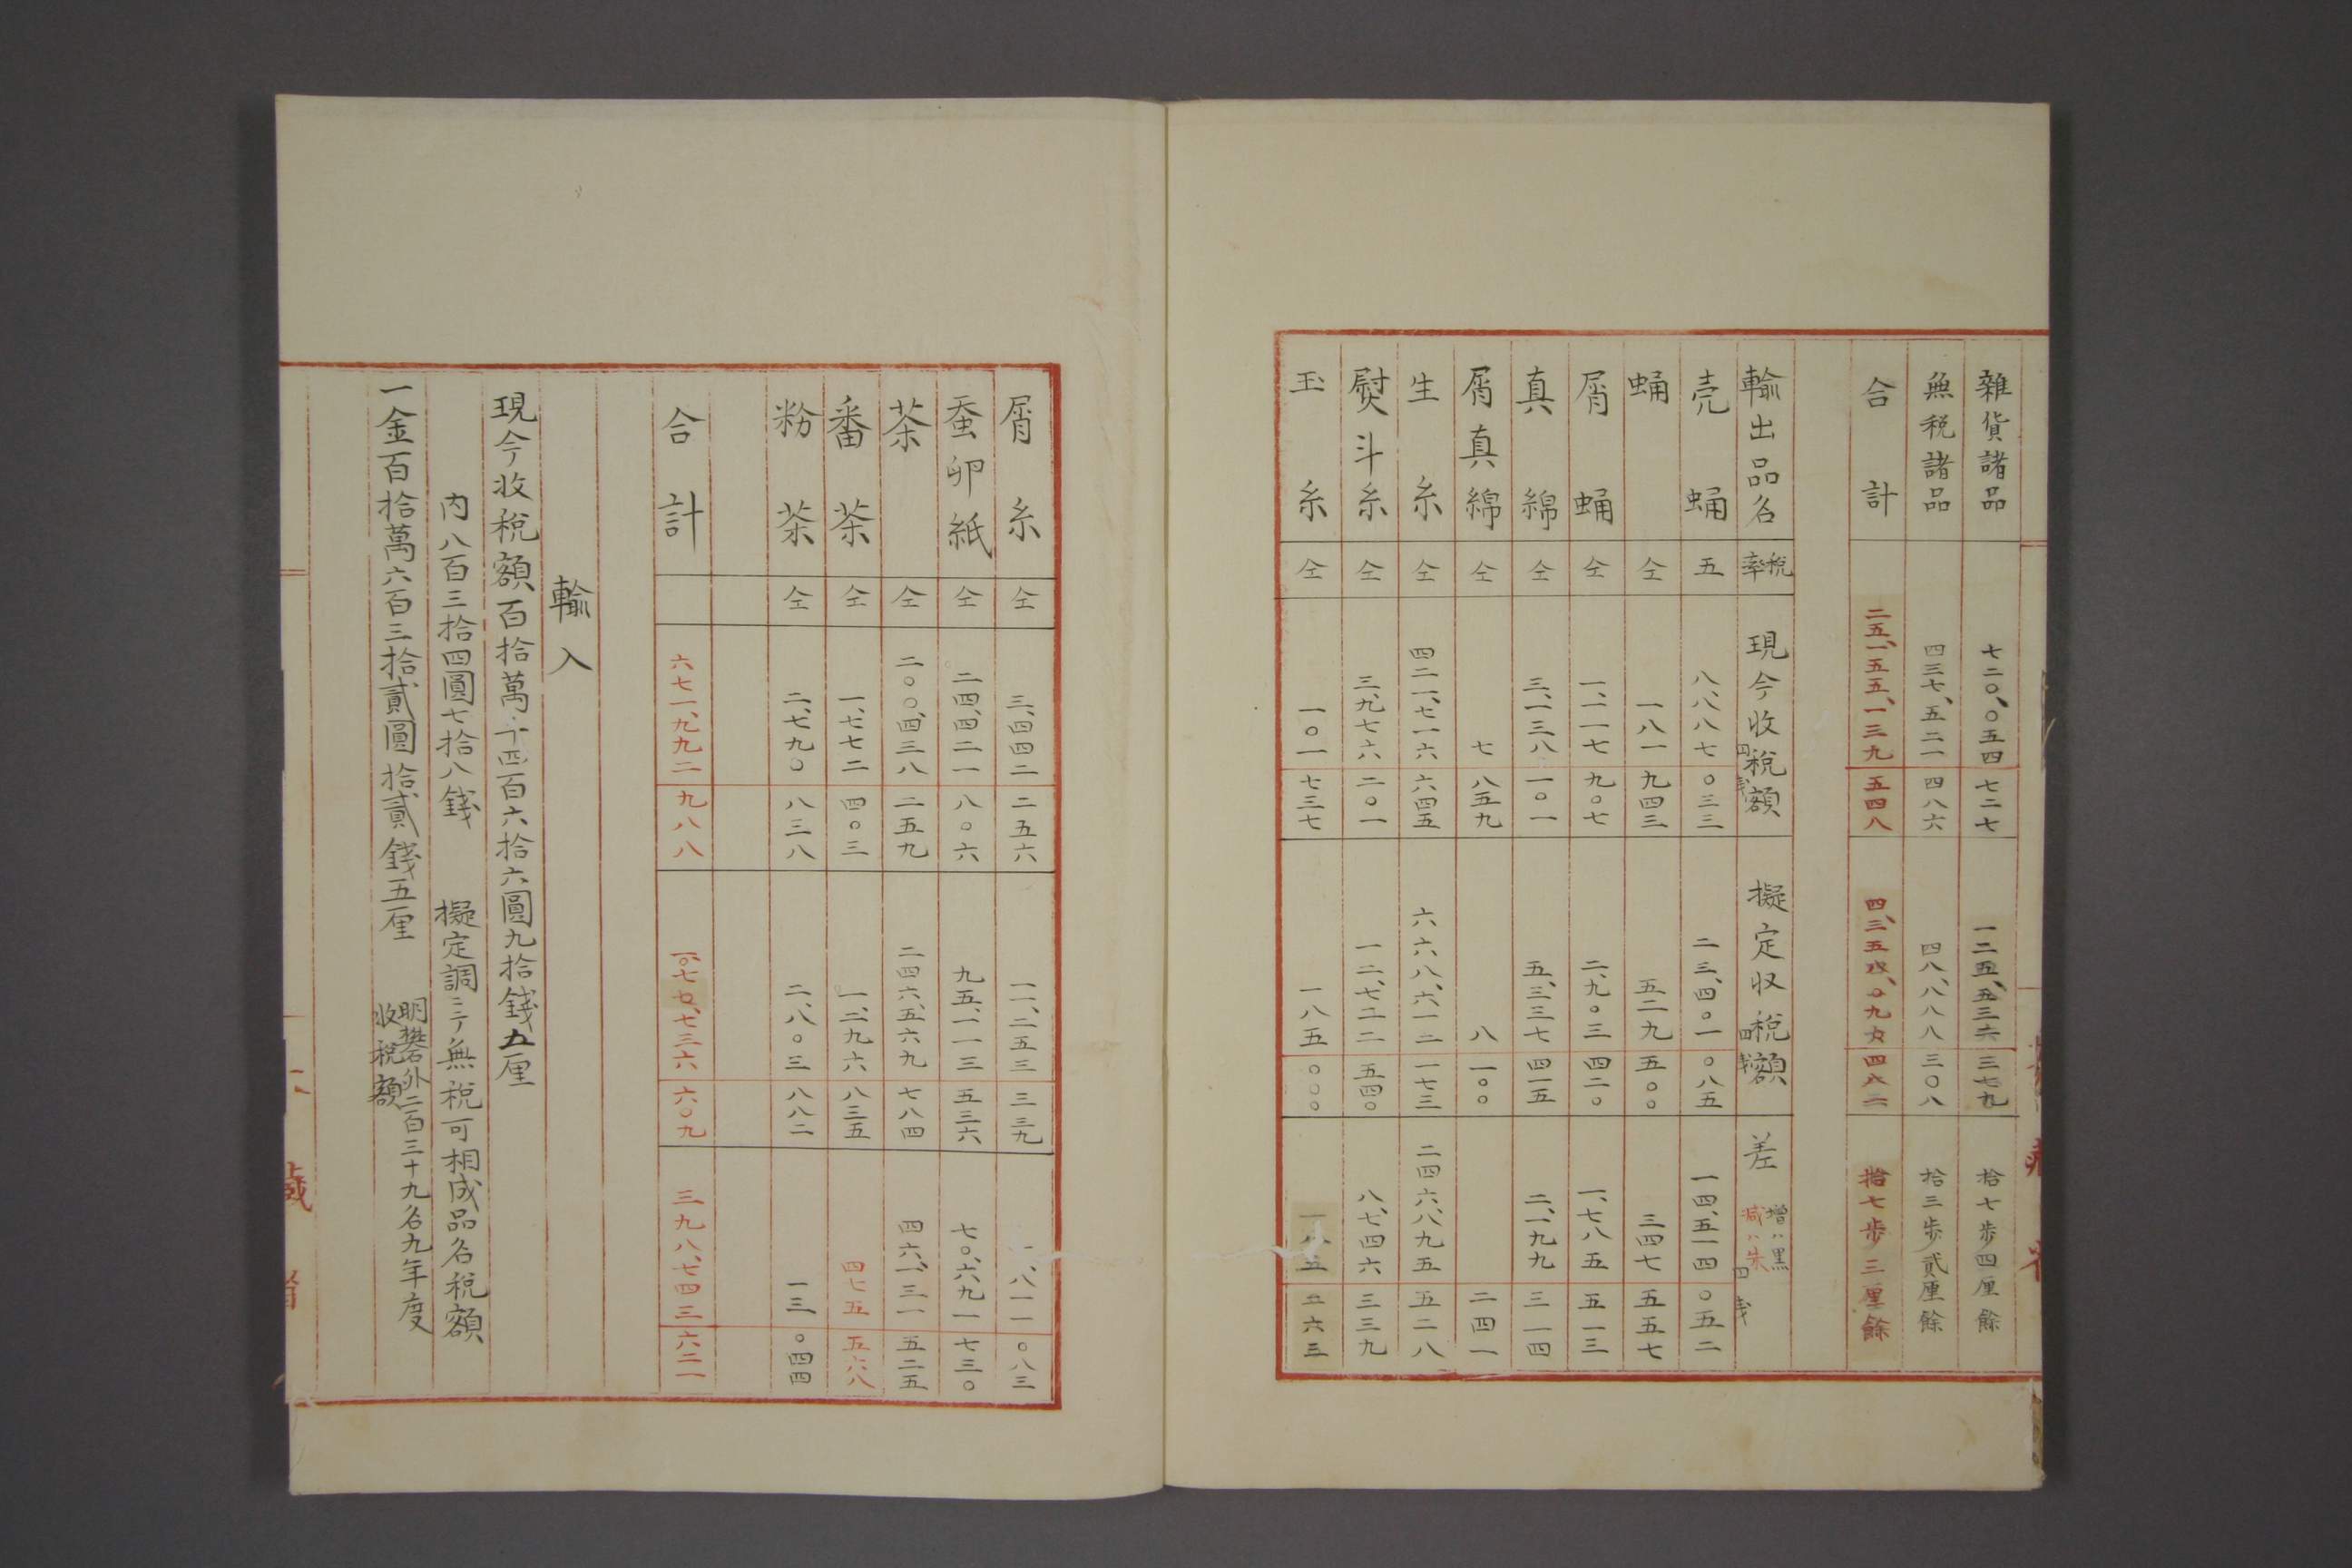 雑貨諸品 七二〇、〇五四 七二七 一二五、五三六 三七九 拾七歩四厘餘
無税諸品 四三七、五二一 四八六 四八、八八八 三〇八 拾三歩貳厘餘
合計 二五、一五五、一三九 五四八 拾七歩三厘餘
輸出品名 税率 現今收税額 円銭 擬定収税額 円銭 差 増ハ黒 減ハ朱 円銭
売蛹 五 八、八八七 〇三三 二三、四〇一 〇八五 一四、五一四 〇五二
蛹 仝 一八一 九四三 五二九 五〇〇 三四七 五五七
屑蛹 仝 一、一一七 九〇七 二、九〇三 四二〇 一、七八五 五一三
真綿 仝 三、一三八 一〇一 五、三三七 四一五 二、一九九 三一四
屑真綿 仝 七 八五九 八 一〇〇 二四一
生糸 仝 四二一、七一六 六四五 六六八、六一二 一七三 二四六、八九五 五二八
熨斗糸 仝 三、九七六 二〇一 一二、七二二 五四〇 八、七四六 三三九
玉糸 仝 一〇一 七三七 一八五 〇〇〇
屑糸 仝 三、四四二 二五六 一一、二五三 三三九 八一一 〇八三
蚕卵紙 仝 二四、四二一 八〇六 九五、一一三 五三六 七〇、六九一 七三〇
茶 仝 二〇〇、四三八 二五九 二四六、五六九 七八四 四六、一三一 五二五
番茶 仝 一、七七二 四〇三 一、二九六 八三五 四七五 五六八
粉茶 仝 二、七九〇 八三八 二、八〇三 八八二 一三 〇四四
合計 六七一、九九二 九八八 一、〇七〇、七三六 六〇九 三九八、七四三 六二一
輸入
現今收税額百拾萬千四百六拾六圓九拾錢五厘
内八百三拾四圓七拾八錢 擬定調ニテ無税可相成品名税額
一金百拾萬六百三拾貳圓拾貳錢五厘 明礬外二百三十九名九年度收税額